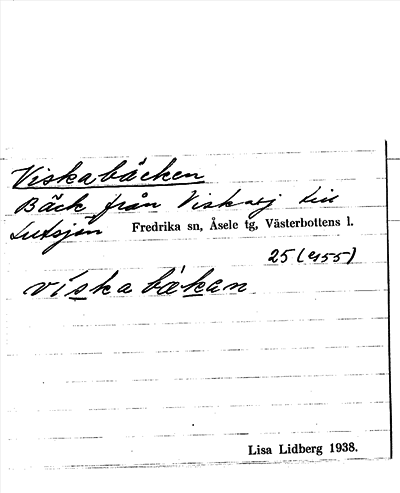 Viskabäcken
Bäck från Viskasj till
Lutsjön Fredrika sn, Åsele tg, Västerbottens l.
25 (455)
viska bäkan
Lisa Lidberg 1938.